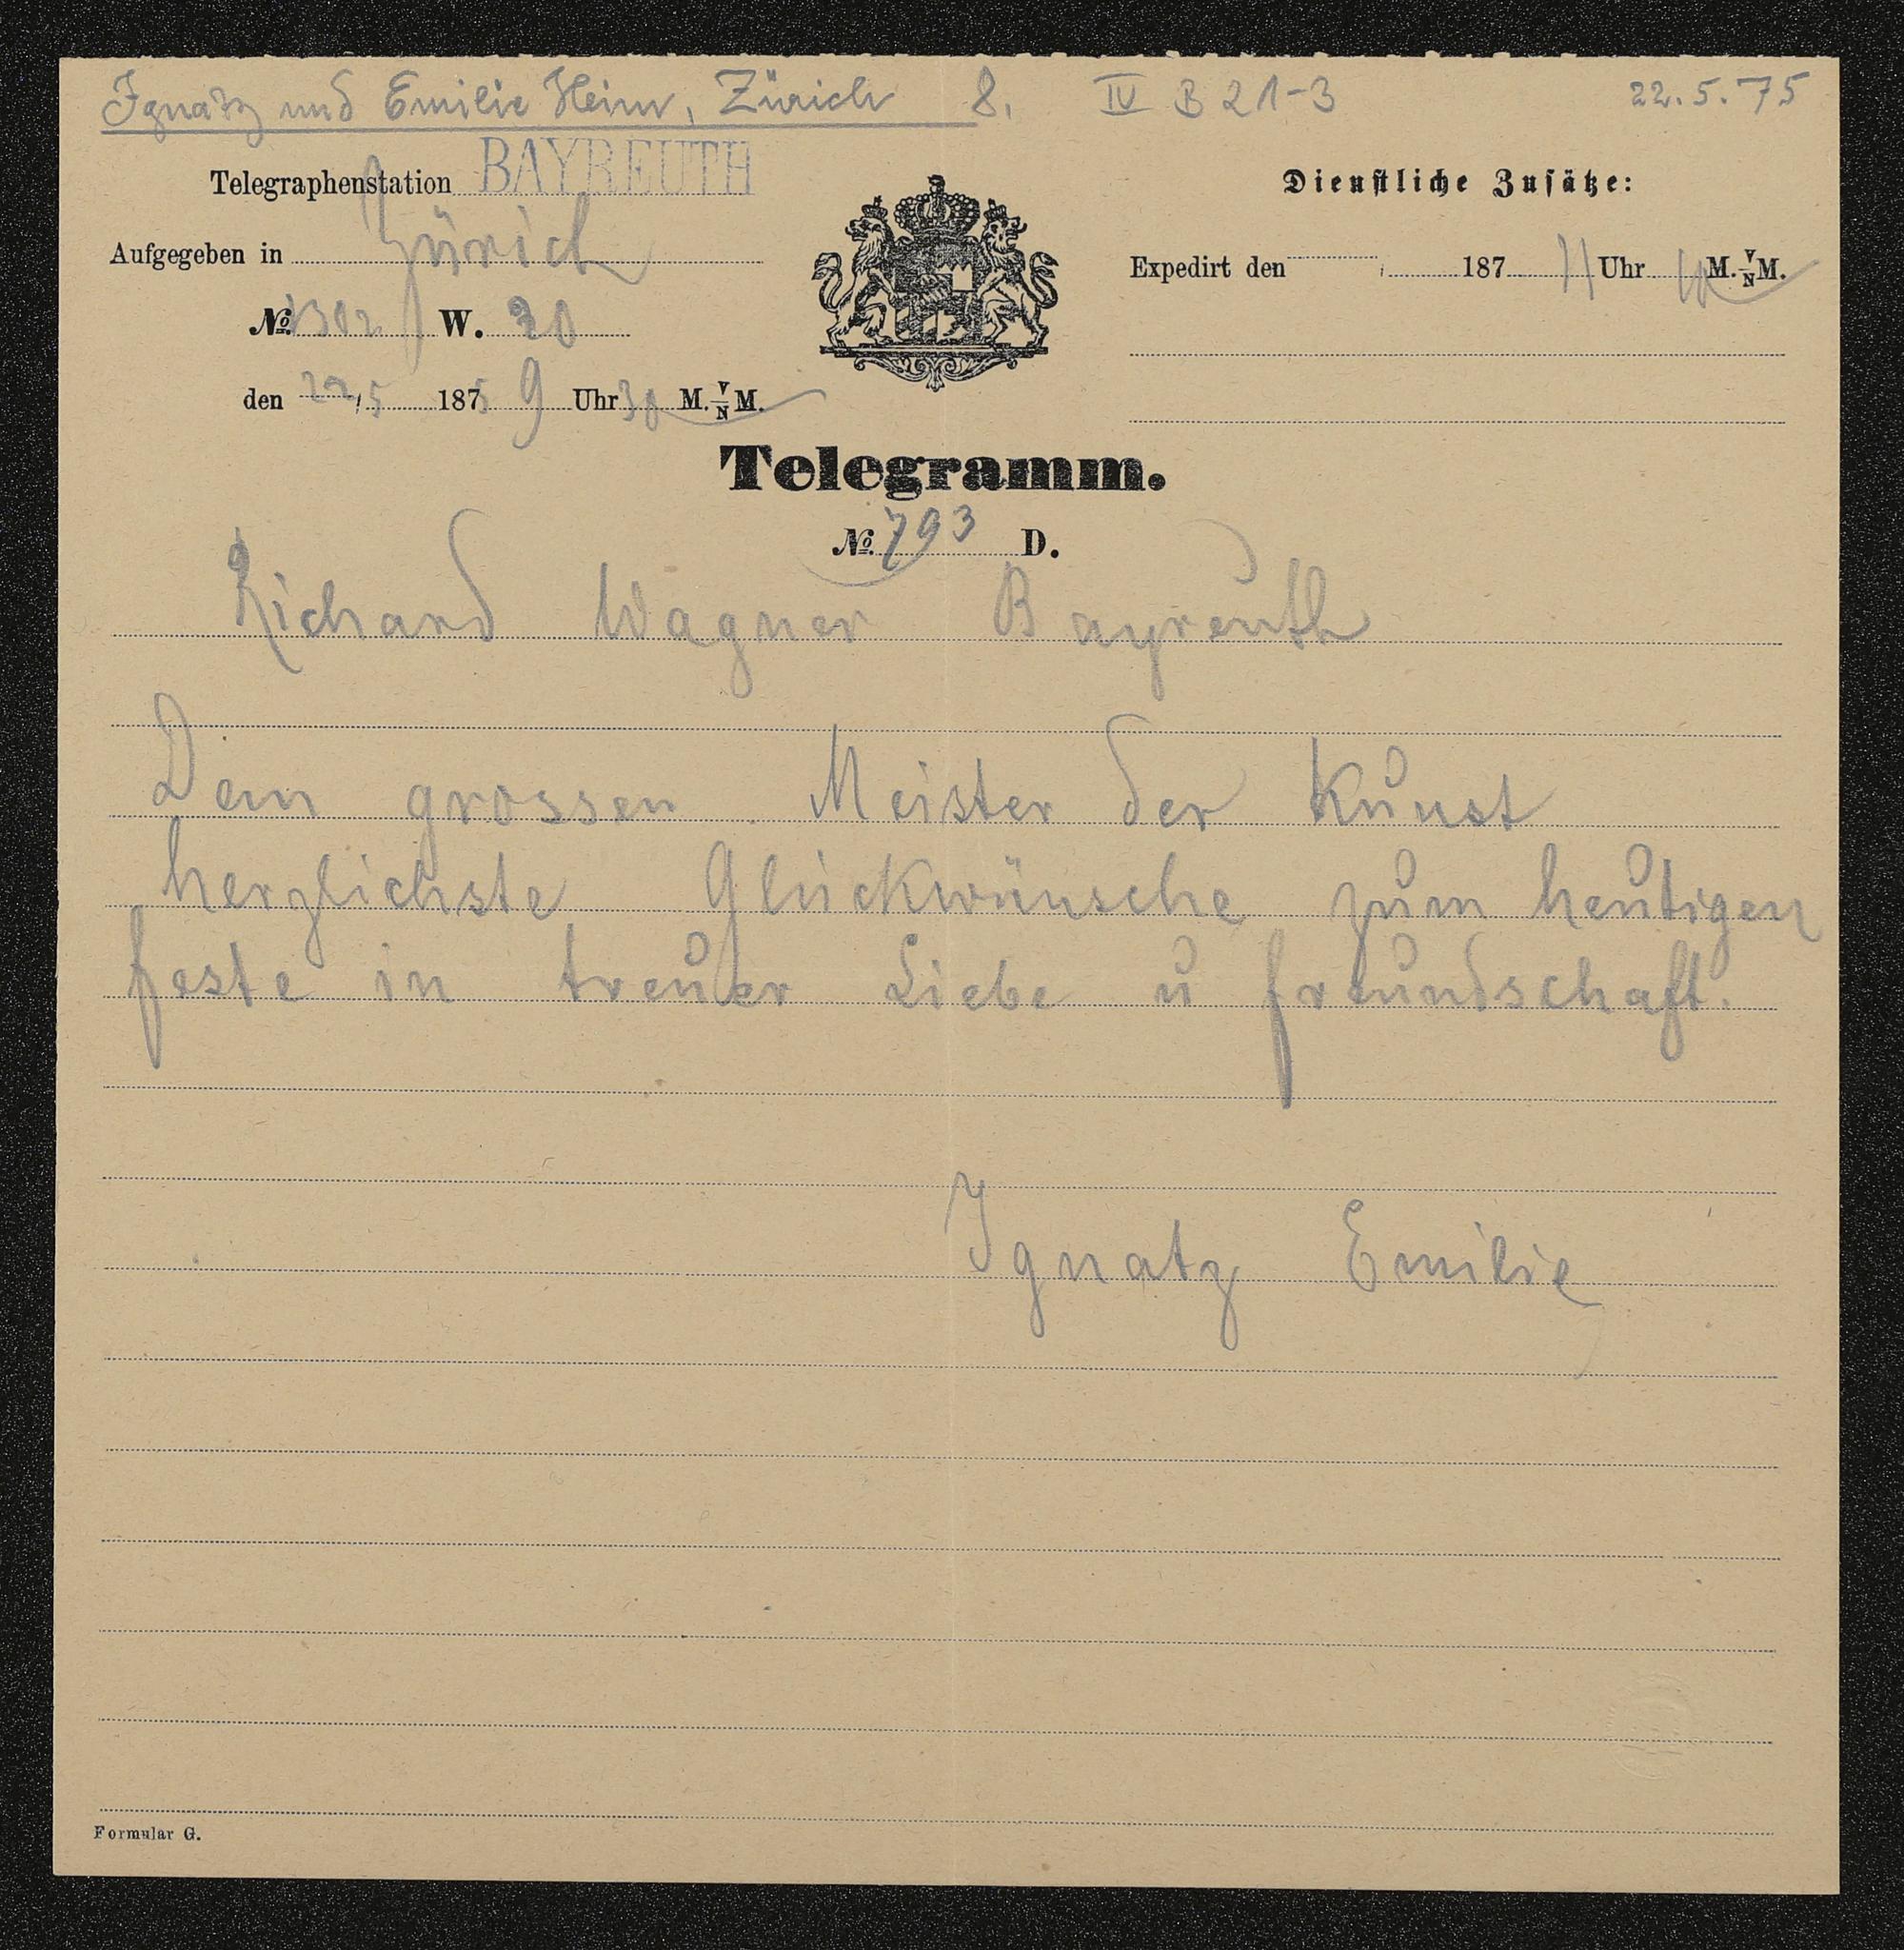 Ignatz und Emilie Heim, Zürich 8. IV B 21-3 22.5.75
Telegraphenstation BAYREUTH
Dienstliche Zusätze:
Aufgegeben in Zürich
Expedirt den 187 11 Uhr 10 M. V/N M.
No. 1302 W. 20
den 22/5 1875 9 Uhr 30 M. V/N M.
Telegramm.
No. 793 D.
Richard Wagner Bayreuth
Dem grossen Meister der Kunst
herzlichste Glückwünsche zum heutigen
feste in treuer Liebe u freundschaft.
Ignatz Emilie
Formular G.